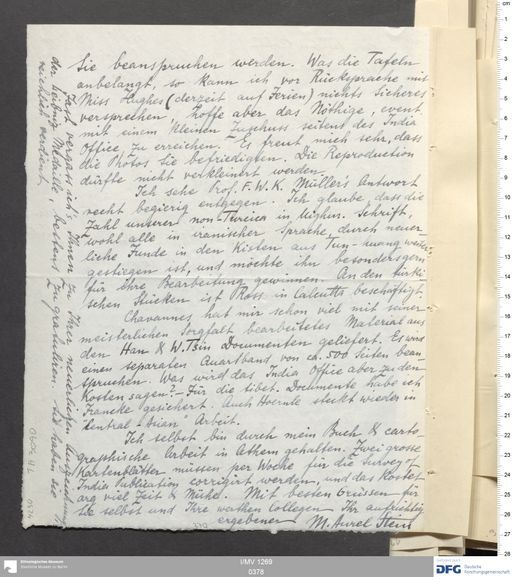 Sie beanspruchen werden. Was die Tafeln
anbelangt, so kann ich vor Rücksprache mit
Miss Hughes (derzeit auf Ferien) nichts Sicheres
versprechen, hoffe aber das Nöthige, event.
mit einem kleinen Zuschuss seitens des India
Office, zu erreichen. Es freut mich sehr, dass
die Photos Sie befriedigten. Die Reproduction
dürfte nicht verkleinert werden.
Ich sehe Prof. F. W. K. Müller's Antwort
recht begierig entgegen. Ich glaube, dass die
Zahl unserer non-Turcica in Uighur. Schrift,
wohl alle in iranischer Sprache, durch neuer-
liche Funde in den Kisten aus Tun-huang
gestiegen ist, und möchte ihn besonders gern
für ihre Bearbeitung gewinnen. An den türki
schen Stücken ist Ross in Calcutta beschäftigt.
Chavannes hat mir schon viel mit seiner
meisterlichen Sorgfalt bearbeitetes Material aus
den Han & W. Tsin Documenten geliefert. Es wird
einen separaten Quartband von ca. 500 Seiten bean
spruchen. Was wird das India Office aber zu den
Kosten sagen? – Für die tibet. Documente habe ich
Francke gesichert. Auch Hoernle steckt wieder in
"Central-Asian" Arbeit.
Ich selbst bin durch mein Buch & carto-
graphische Arbeit in Athem gehalten. Zwei grosse
Kartenblätter müssen per Woche für die Survey of
India Publication corrigirt werden, und das kostet
arg viel Zeit & Mühe. Mit besten Grüssen für
Sie selbst und Ihre werthen Collegen Ihr aufrichtig
ergebener M. Aurel Stein
Fast vergass ich's Ihnen zu Ihrer neuerlichen
der Leibniz Medaille, bestens zu gratuliren. Sie haben sie
reichlich verdient!
Ethnologisches Museum
Staatliche Museen zu Berlin
I/MV 1269
0378
DFG Deutsche
Forschungsgemeinschaft